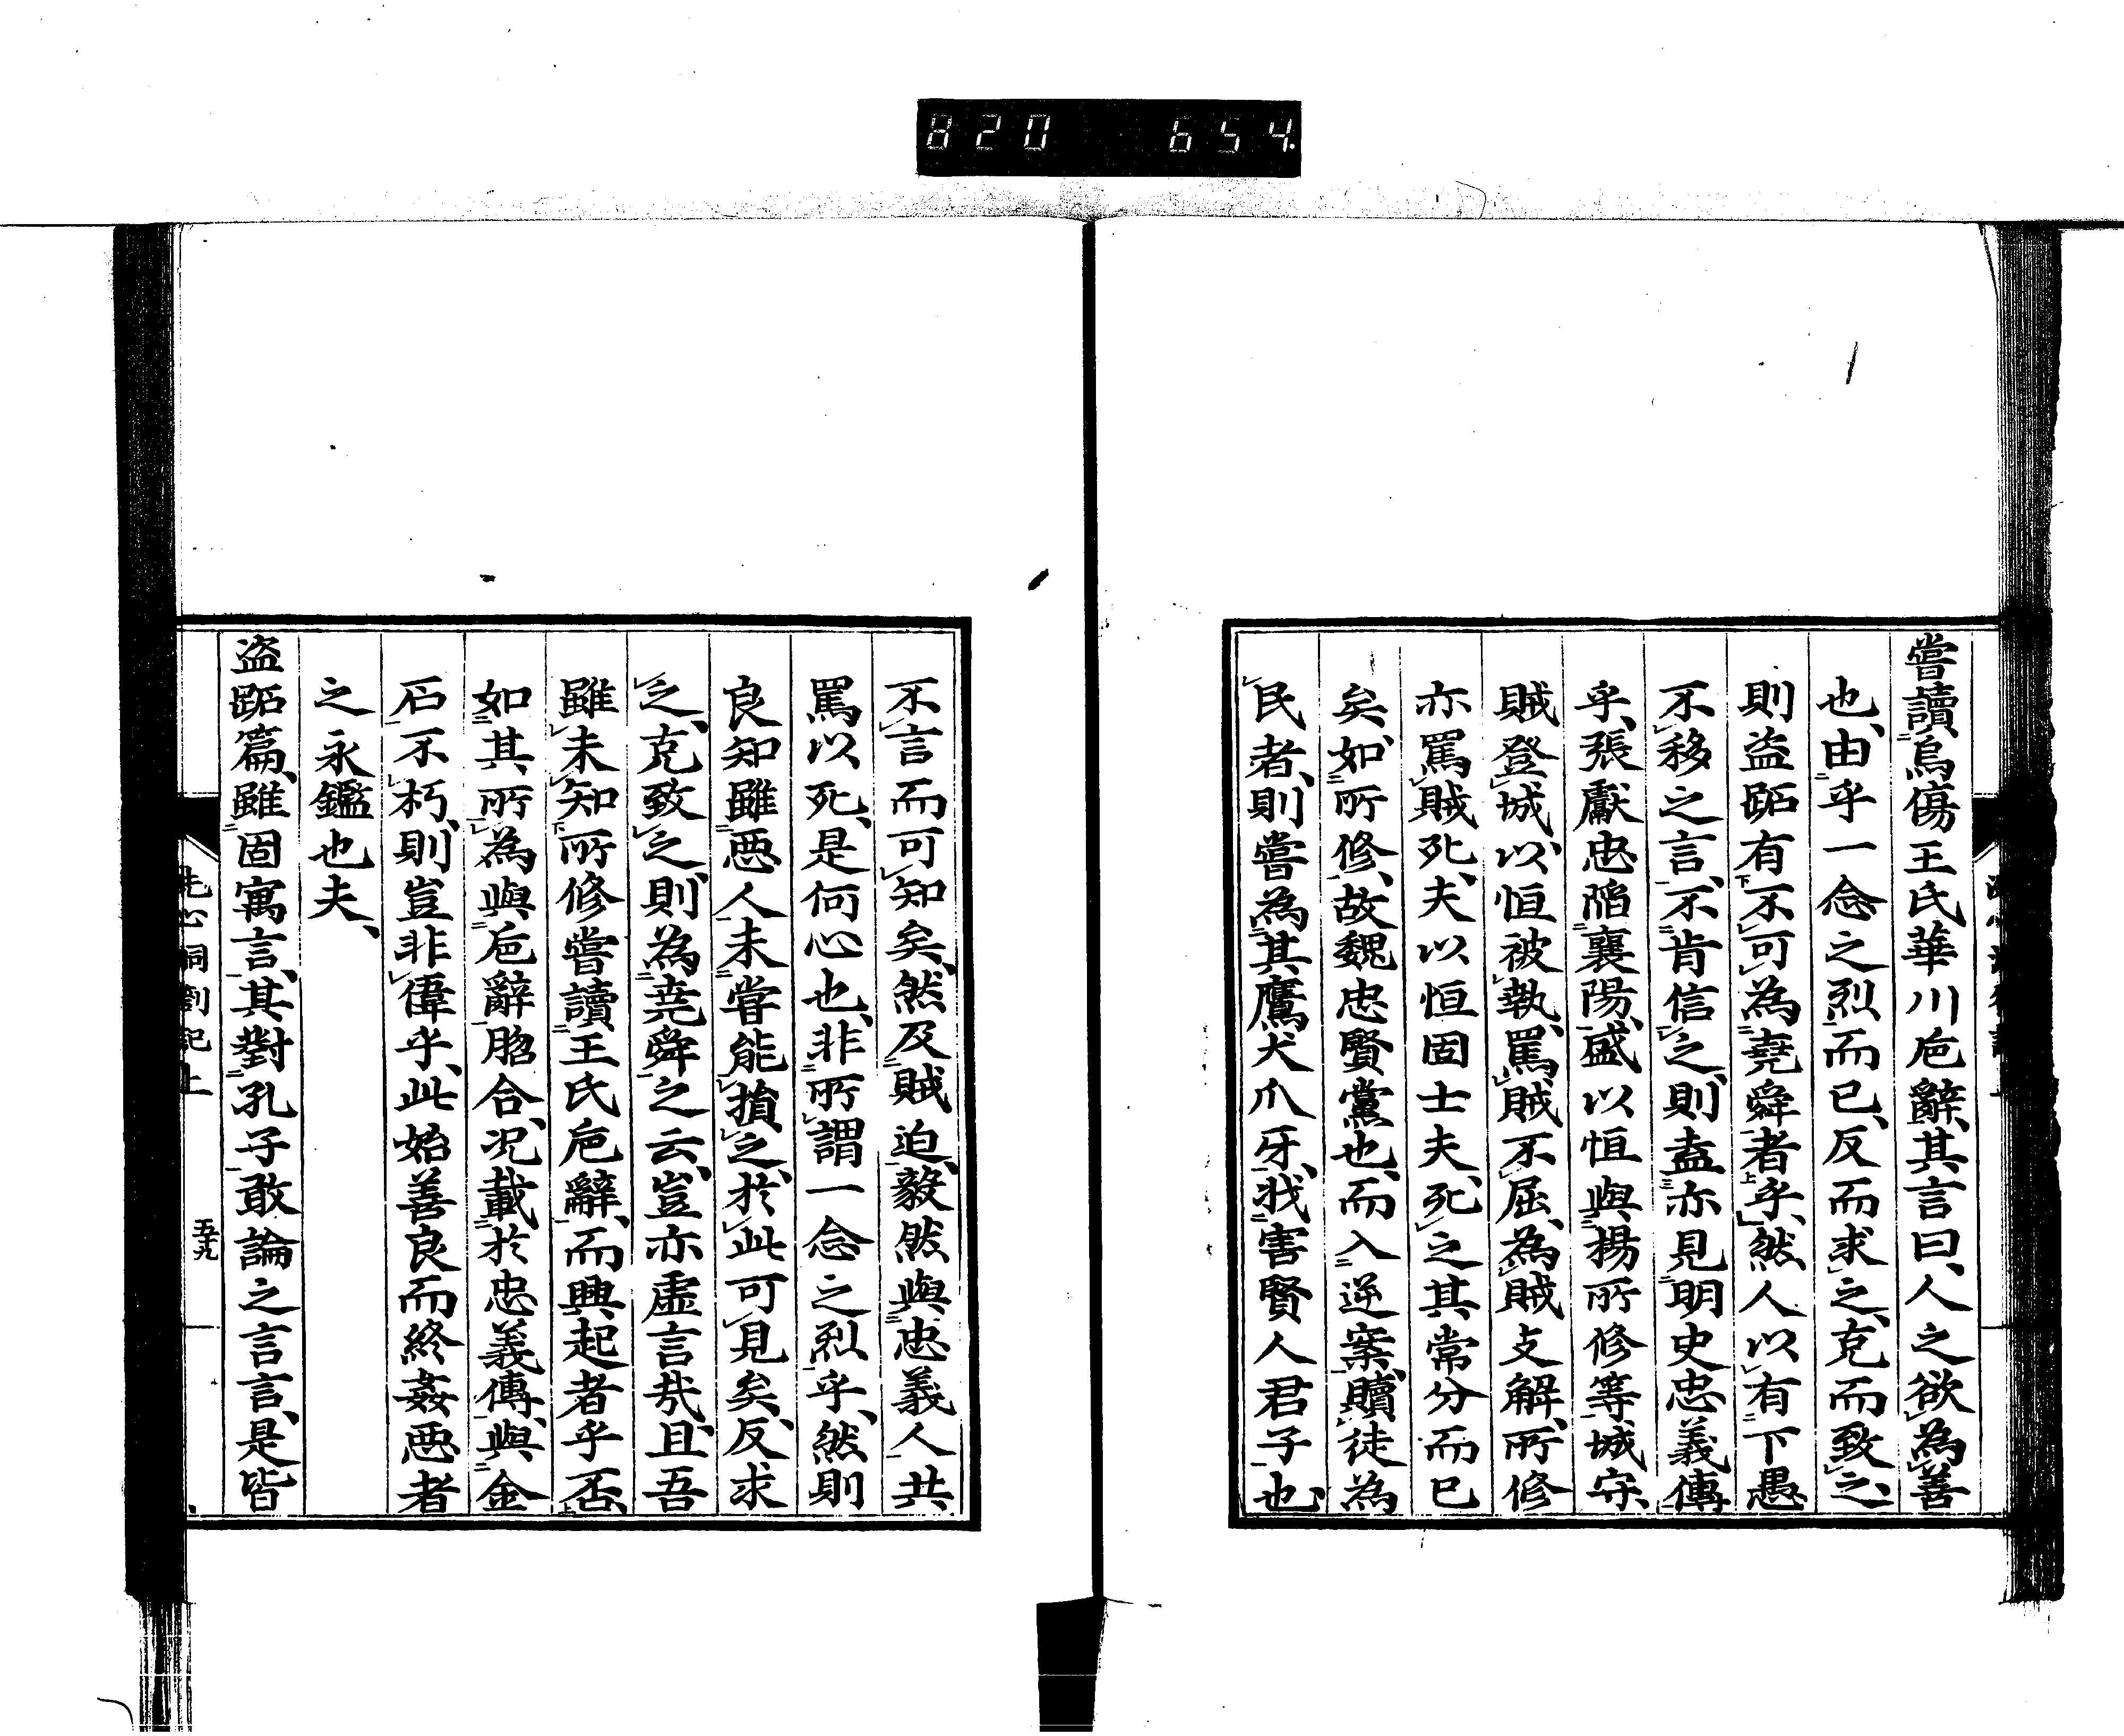 820 654.
嘗讀烏傷王氏華川巵辭、其言曰、人之欲為善
也、由乎一念之烈而已、反而求之、克而致之、
則盜跖有不可為堯舜者乎、然人以有下愚
不移之言、不肯信之、則盍亦見明史忠義傳
乎、張獻忠陷襄陽、盛以恒與楊所修等城守、
賊登城、以恒被執、罵賊不屈、為賊支解、所修
亦罵賊死、夫以恒固士夫、死之其常分而已
矣、如所修、故魏忠賢黨也、而入逆案、贖徒為
民者、則嘗為其鷹犬爪牙、戕害賢人君子也、
不言而可知矣、然及賊迫、毅然與忠義人共
罵以死、是何心也、非所謂一念之烈乎、然則
良知雖惡人未嘗能損之、於此可見矣、反求
之、克致之、則為堯舜之云、豈亦虛言哉、且吾
雖未知所修嘗讀王氏巵辭、而興起者乎否、
如其所為與巵辭脗合、况載於忠義傳、與金
石不朽、則豈非偉乎、此始善良而終姦惡者
之永鑑也夫、
盜跖篇、雖固寓言、其對孔子敢論之言言、是皆
洗心洞劄記上
五十九